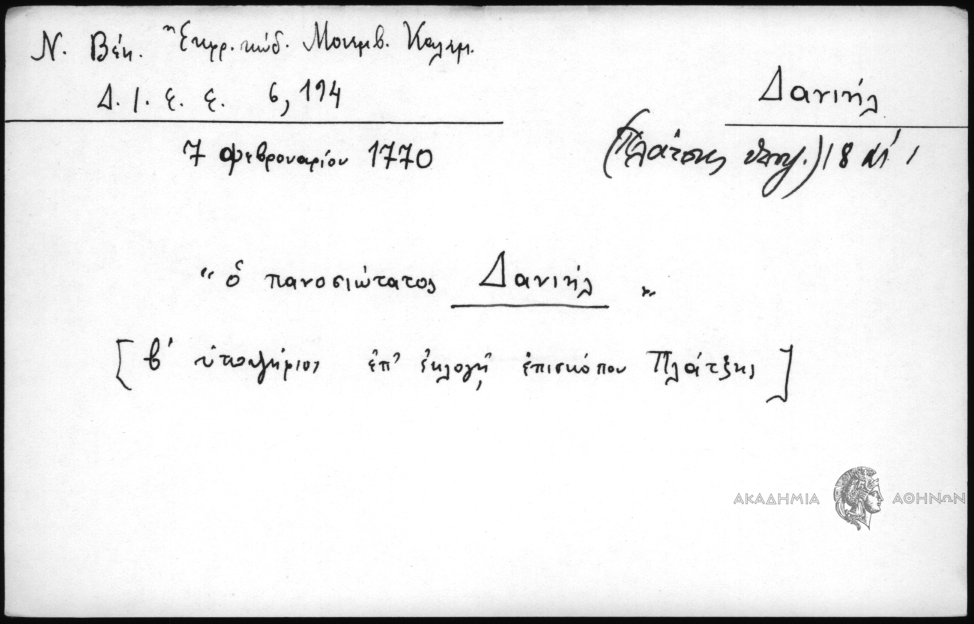 Ν. Βέη. Ἐκκρ. κώδ. Μονεμβ. Καλαμ.
Δ. Ι. Ε. Ε. 6, 194
Δανιήλ
7 Φεβρουαρίου 1770
(Πλάτσης ὑποψ.) 18 αἰ
“ ὁ πανοσιώτατος Δανιήλ „
[ β' ὑποψήφιος ἐπ' ἐκλογῇ ἐπισκόπου Πλάτζης ]
ΑΚΑΔΗΜΙΑ ΑΘΗΝΩΝ